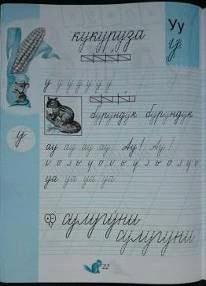 Уу
кукуруза
у
у у у у у у у
бурундук бурундук
у
ау ау ау ау Ау! Ау!
уа уа уа уа
сулугуни
сулугуни
22